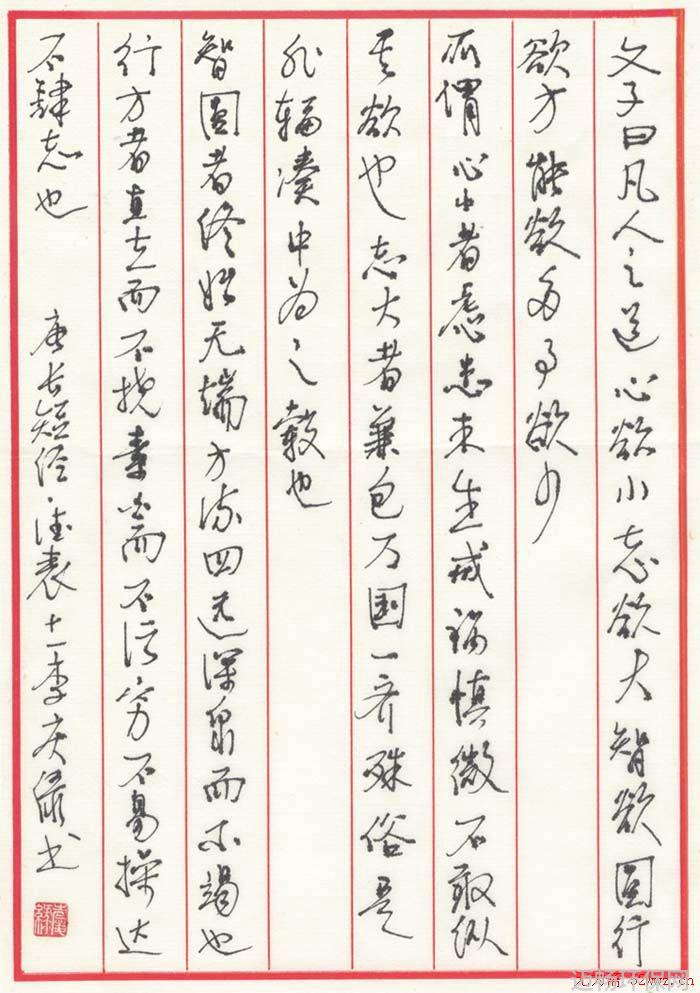 文子曰凡人之道心欲小志欲大智欲圆行
欲方能欲多事欲少
所谓心小者虑患未生戒祸慎微不敢纵
其欲也志大者兼包万国一齐殊俗是
非辐凑中为之毂也
智圆者终始无端方流四远深泉而不竭也
行方者直立而不挠素白而不污穷不易操达
不肆志也 唐长短经·德表十一李庆绿书